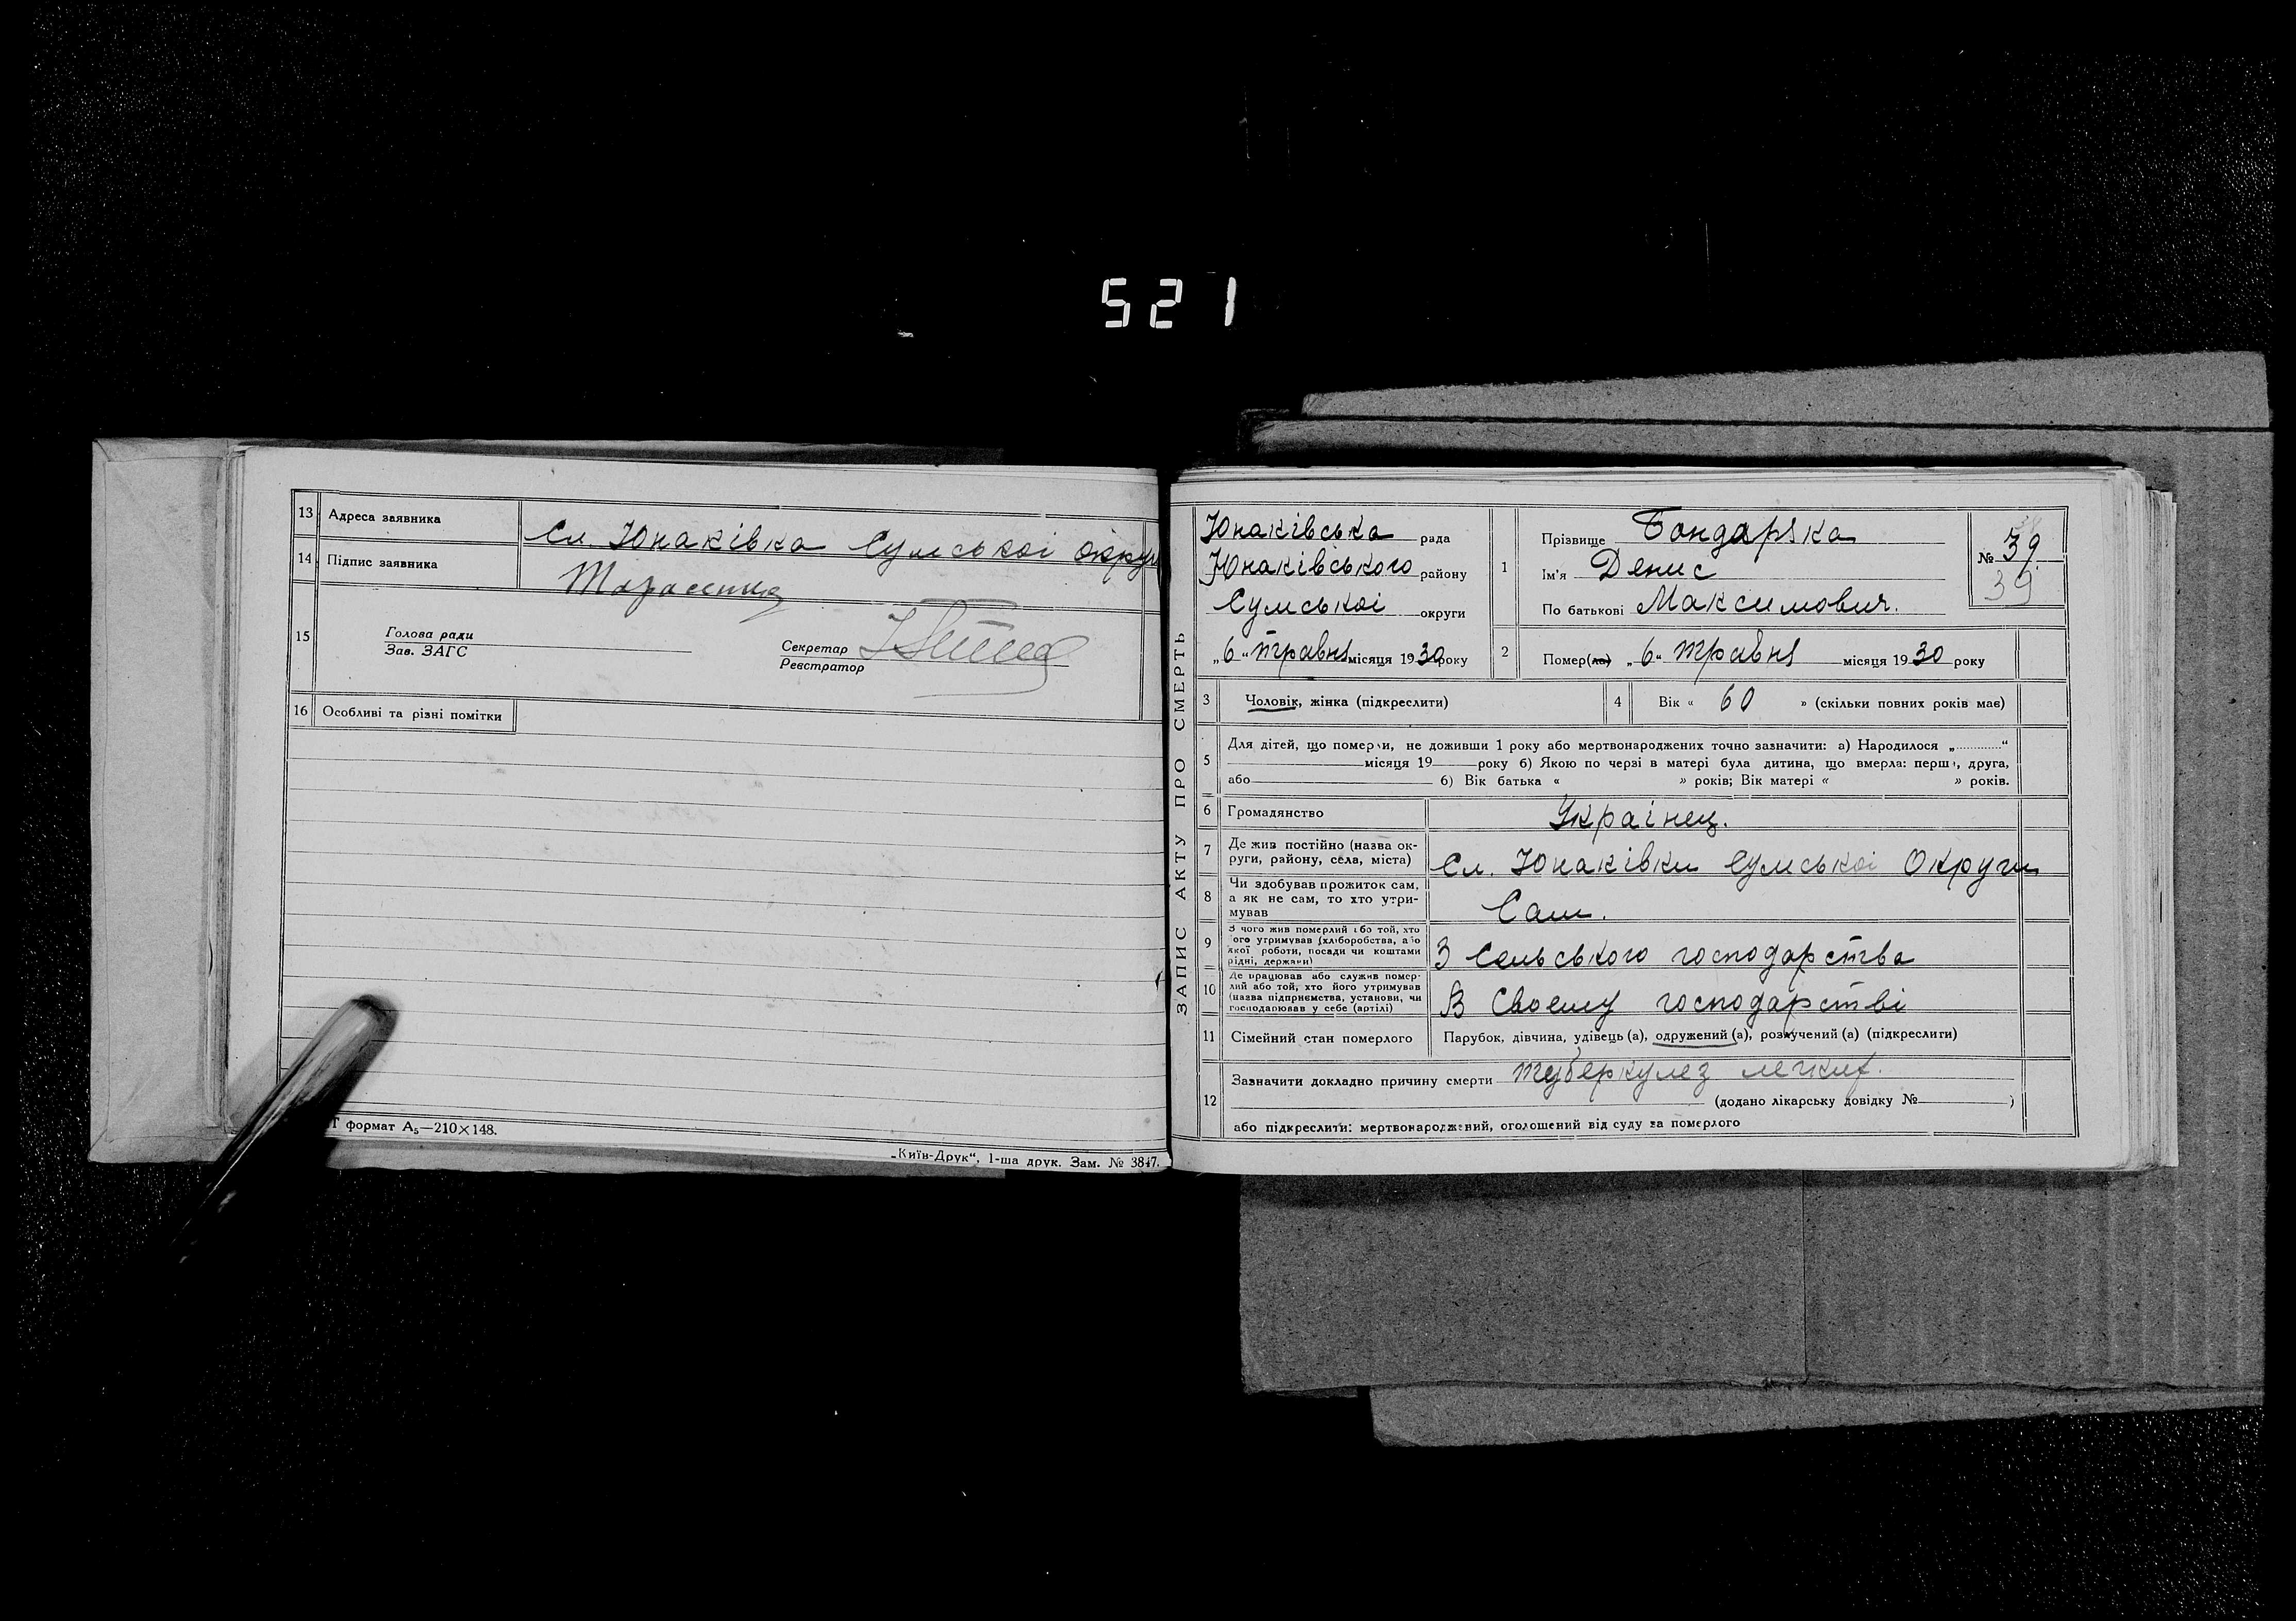 521
13 Адреса заявника Сл. Юнаківка Сумськоі округ
14 Підпис заявника
15 Голова ради
Зав. ЗАГС
Секретар
Реєстратор
16 Особливі та різні помітки
формат А5—210×148.
„Київ-Друк“, 1-ша друк. Зам. № 3847.
ЗАПИС АКТУ ПРО СМЕРТЬ
Юнаківська рада
Юнаківського району
Сумськоі округи
„6“ травня місяця 1930 року
1 Прізвище
Ім'я Денис
По батькові Максимович.
№ 39
39
2 Помер(ла) „6“ Травня місяця 1930 року
3 Чоловік, жінка (підкреслити)
4 Вік « 60 » (скільки повних років має)
5 Для дітей, що померли, не доживши 1 року або мертвонароджених точно зазначити: а) Народилося „ “
місяця 19 року б) Якою по черзі в матері була дитина, що вмерла: перша, друга,
або 6) Вік батька « » років; Вік матері « » років.
6 Громадянство Украінец.
7 Де жив постійно (назва ок-
руги, району, села, міста) Сл. Юнаківки Сумськоі Округи
8 Чи здобував прожиток сам,
а як не сам, то хто утри-
мував Сам.
9 З чого жив померлий або той, хто
його утримував (хліборобства, або
якої роботи, посади чи коштами
рідні, держави) З Сельського господарства
10 Де працював або служив помер-
лий або той, хто його утримував
(назва підприємства, установи, чи
господарював у себе (артілі) В Своему господарстві
11 Сімейний стан померлого Парубок, дівчина, удівець (а), одружений (а), розлучений (а) (підкреслити)
12 Зазначити докладно причину смерти туберкулез легких.
(додано лікарську довідку № )
або підкреслити: мертвонароджений, оголошений від суду за померлого